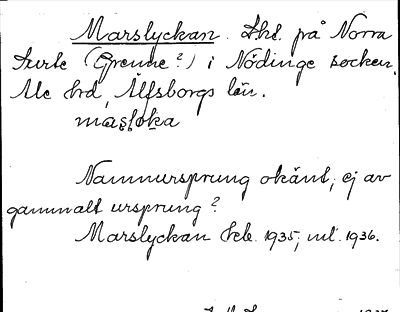 Marslyckan. Lht. på Norra
Surte (Grenne?) i Nödinge socken,
Ale hrd, Älfsborgs län.
Namnursprung okänt, ej av
gammalt ursprung?
Marslyckan 1935, 1936.